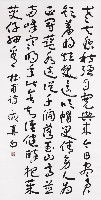 老去悲秋強自寬興來今日盡君
歡羞將短髮還吹帽笑倩旁人為
正冠藍水遠從千澗落玉山高並
兩峰寒明年此會知誰健醉把茱
萸仔細看杜甫詩